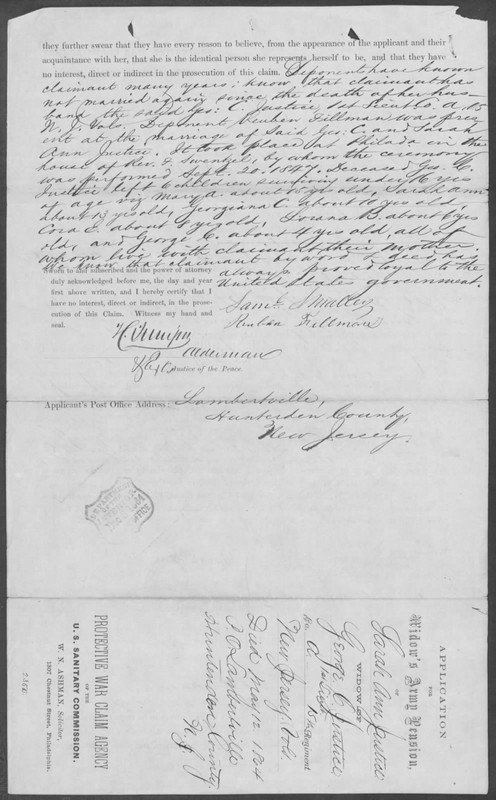 they further swear that they have every reason to believe, from the appearance of the applicant and their
acquaintance with her, that she is the identical person she represents herself to be, and that they have
no interest, direct or indirect in the prosecution of this claim. Deponents have known
claimant many years; know that claimant has
not married again since the death of her hus-
band the said Geo: C. Justice, late Private A, 15
N. J. Vols. Deponent Reuben Fillman was pres-
ent at the marriage of said Geo: C. and Sarah
Ann Justice. It took place at Philada in the
house of Rev. by whom the ceremony
was performed Sept. 20. 1847. Deceased Geo. C.
Justice left 6 children surviving under 16 yrs
of age viz Mary A. about yrs old, Sarah Ann
about 13 yrs old, Georgiana C. about 10 yrs old,
Cora E. about 8 yrs old, B. about 6 yrs
old, and George C. about 4 yrs old, all of
whom live with claimant their mother.
know that claimant by word & deed has
always proved loyal to the
United States government.
Sworn to and subscribed and the power of attorney
duly acknowledged before me, the day and year
first above written, and I hereby certify that I
have no interest, direct or indirect, in the prose-
cution of this Claim. Witness my hand and
seal.
Saml Smalley
Reuben Fillman
Alderman
Justice of the Peace.
Applicant's Post Office Address: Lambertville,
Hunterden County,
New Jersey.
APPLICATION
FOR
Widow's Army Pension,
OF
Sarah Ann Justice
WIDOW OF
George C. Justice
Co. A 15th Regiment
New Jersey Vols
Died
P.O. Lambertville
Hunterden County,
N. J.
PROTECTIVE WAR CLAIM AGENCY
OF THE
U. S. SANITARY COMMISSION.
W. N. ASHMAN, Solicitor,
1307 Chestnut Street, Philadelphia.